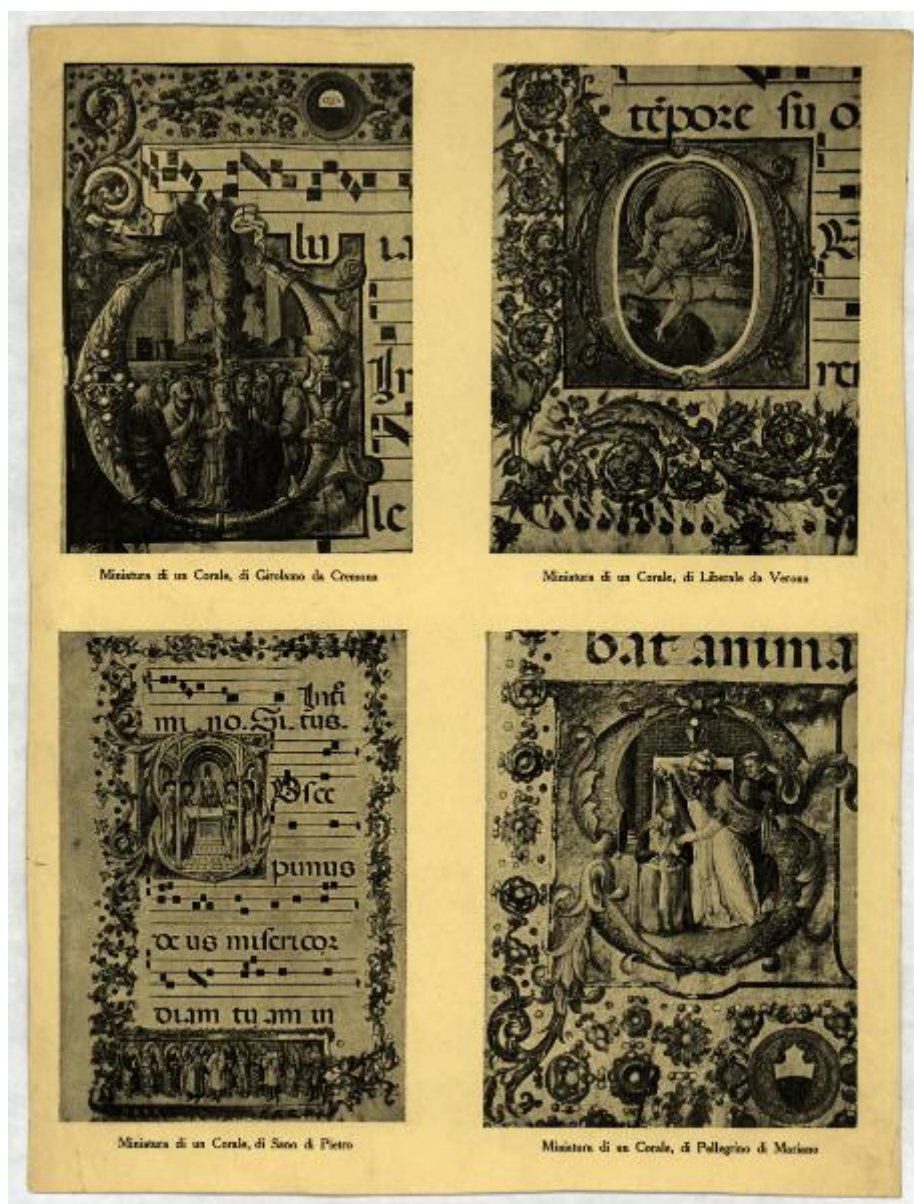 lu
le
Miniatura di un Corale, di Girolamo da Cremona
tēpore su o
Miniatura di un Corale, di Liberale da Verona
mi no. Si cus.
pimus
de us misericor
diam tu am in
Miniatura di un Corale, di Sano di Pietro
bat anima
Miniatura di un Corale, di Pellegrino di Mariano